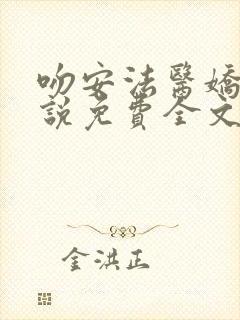 吻安法醫嬌
說免費全文
金洪正